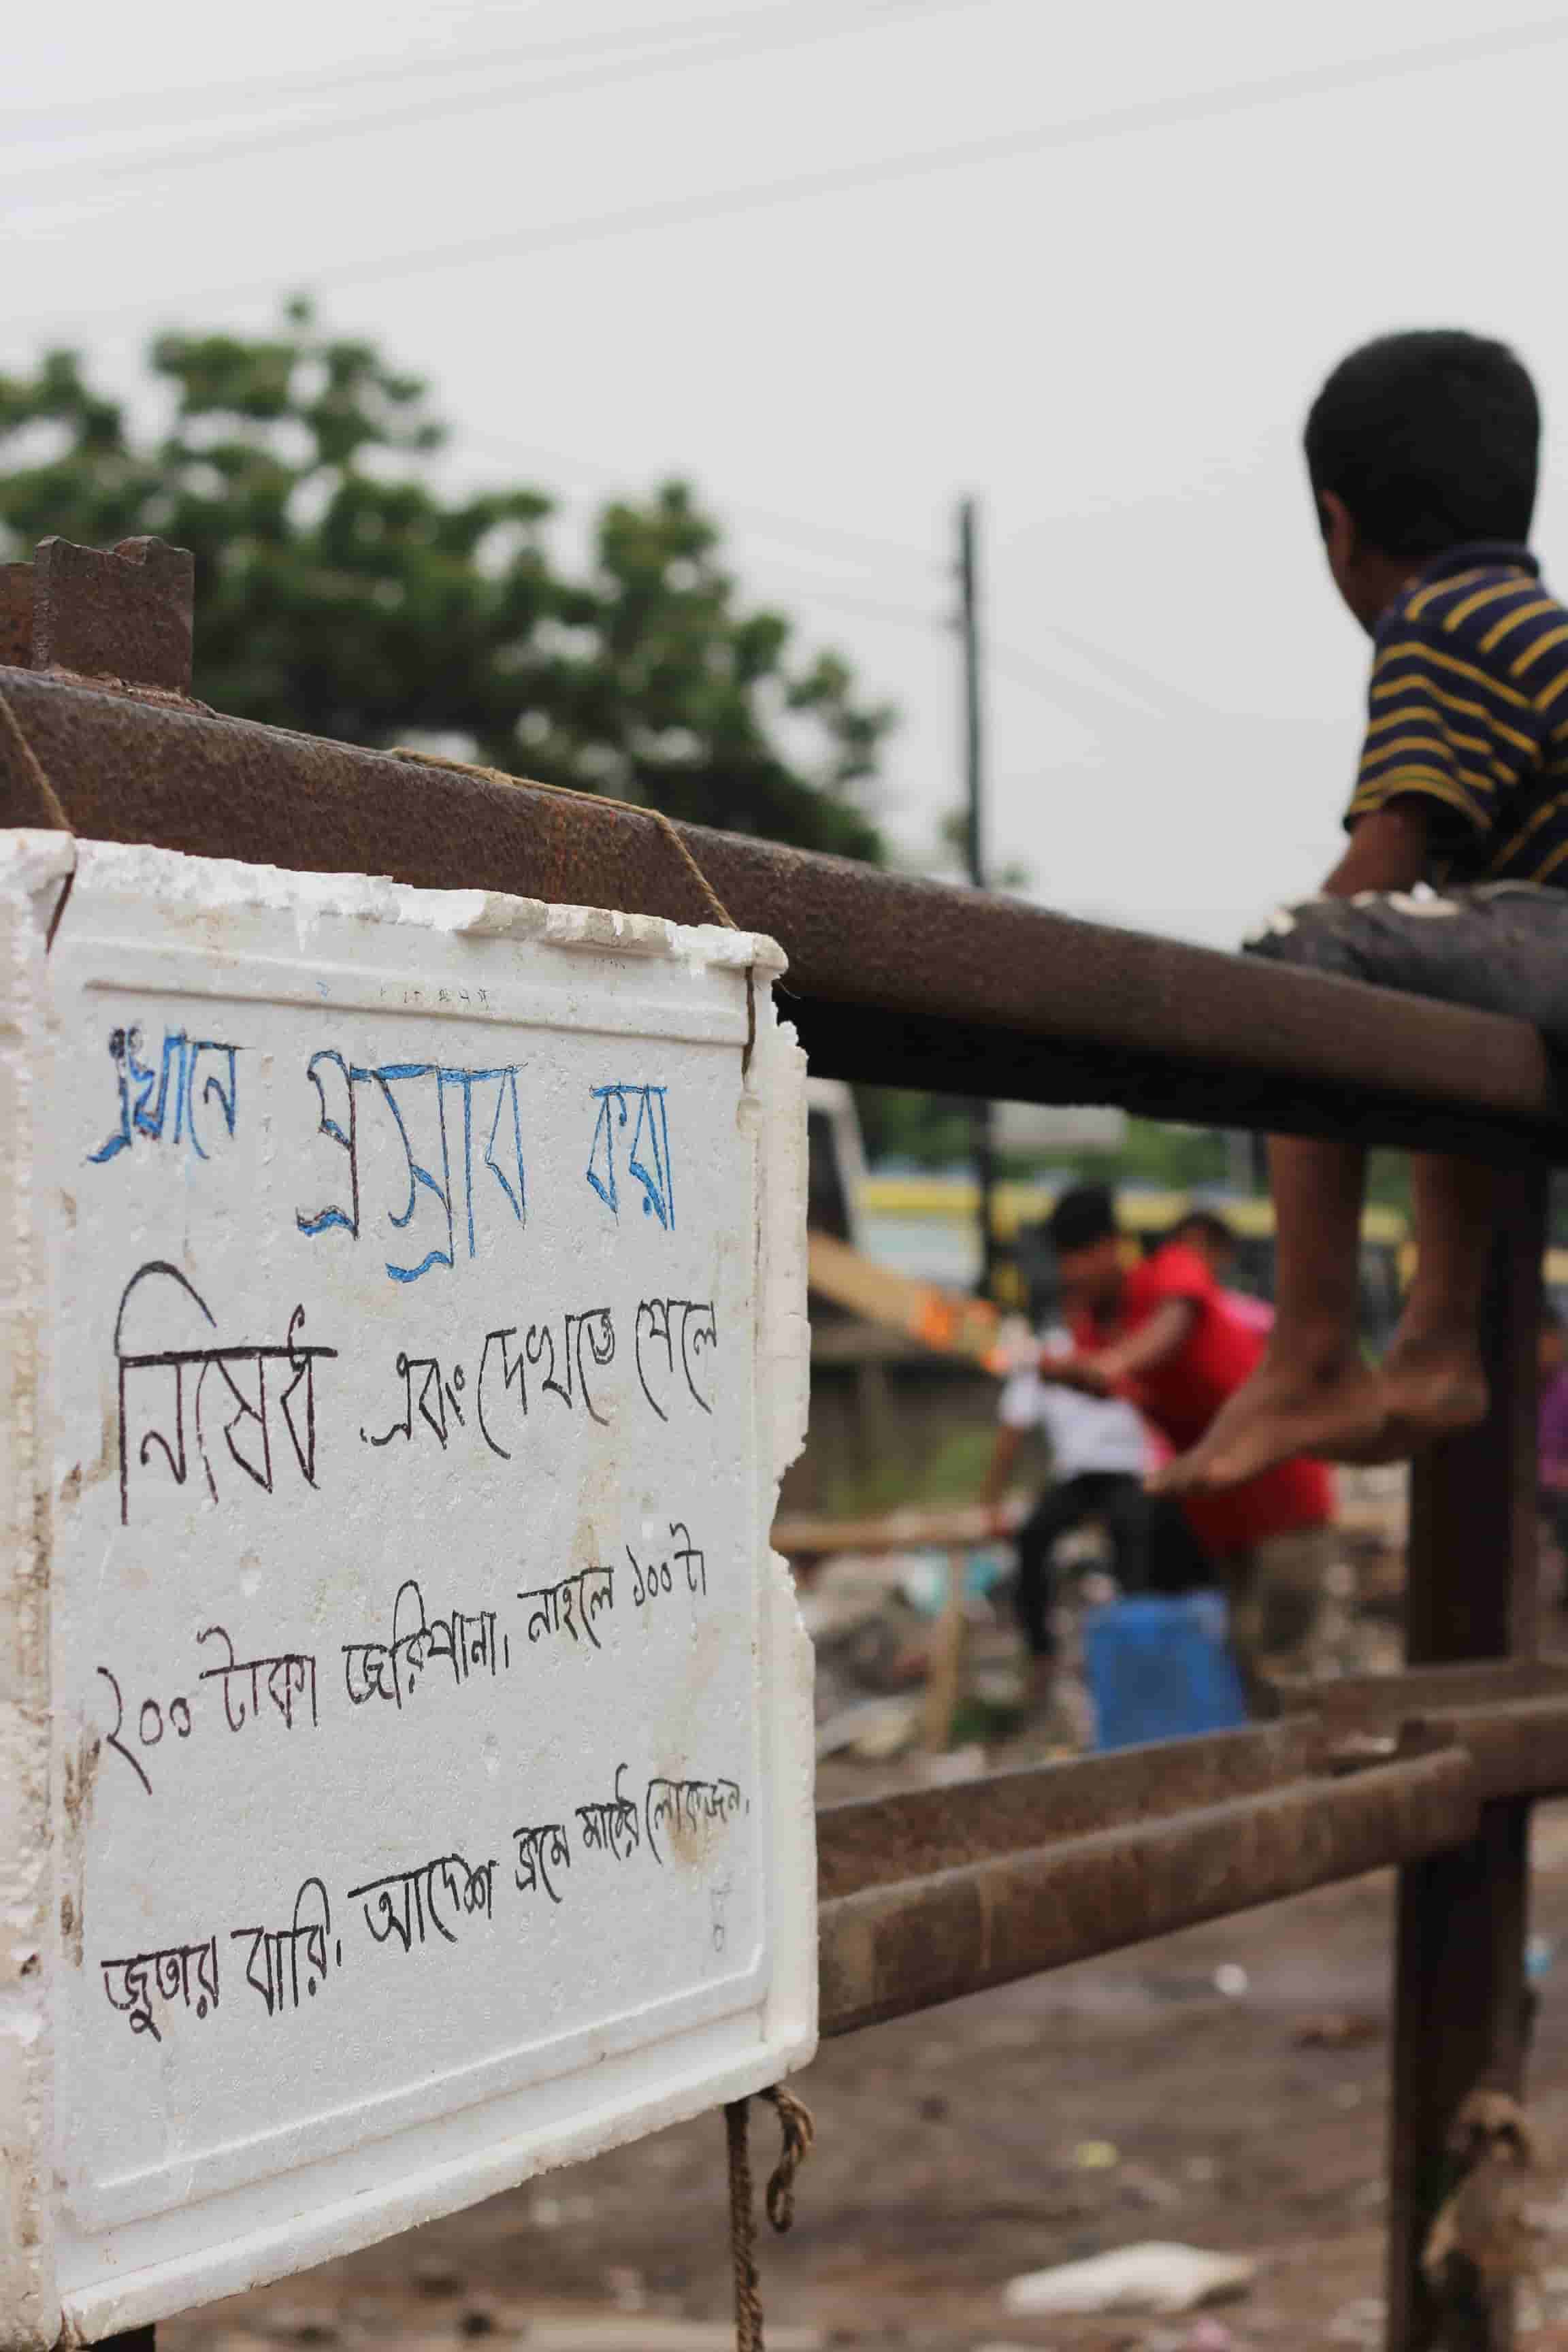 এখানে প্রস্রাব করা
নিষেধ এবং দেখতে পেলে
২০০ টাকা জরিপানা। নাহলে ১০০ টা
জুতার বারি। আদেশ ক্রমে মাঠের লোকজন।